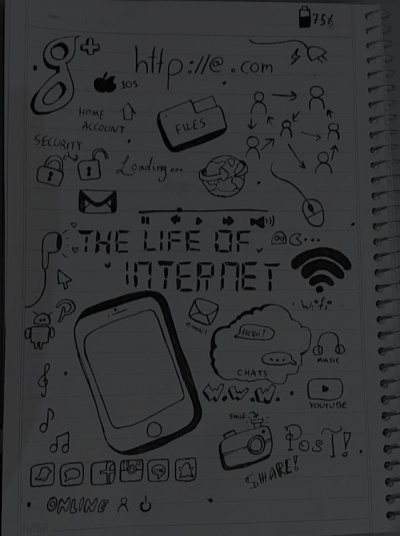 75%
http://@.com
iOS
HOME
ACCOUNT
FILES
SECURITY
Loading...
THE LIFE OF
INTERNET
wifi
e-mail
Hello!
...
CHATS
MUSIC
W.W.W.
YOUTUBE
Smile
POST!
SHARE!
ONLINE